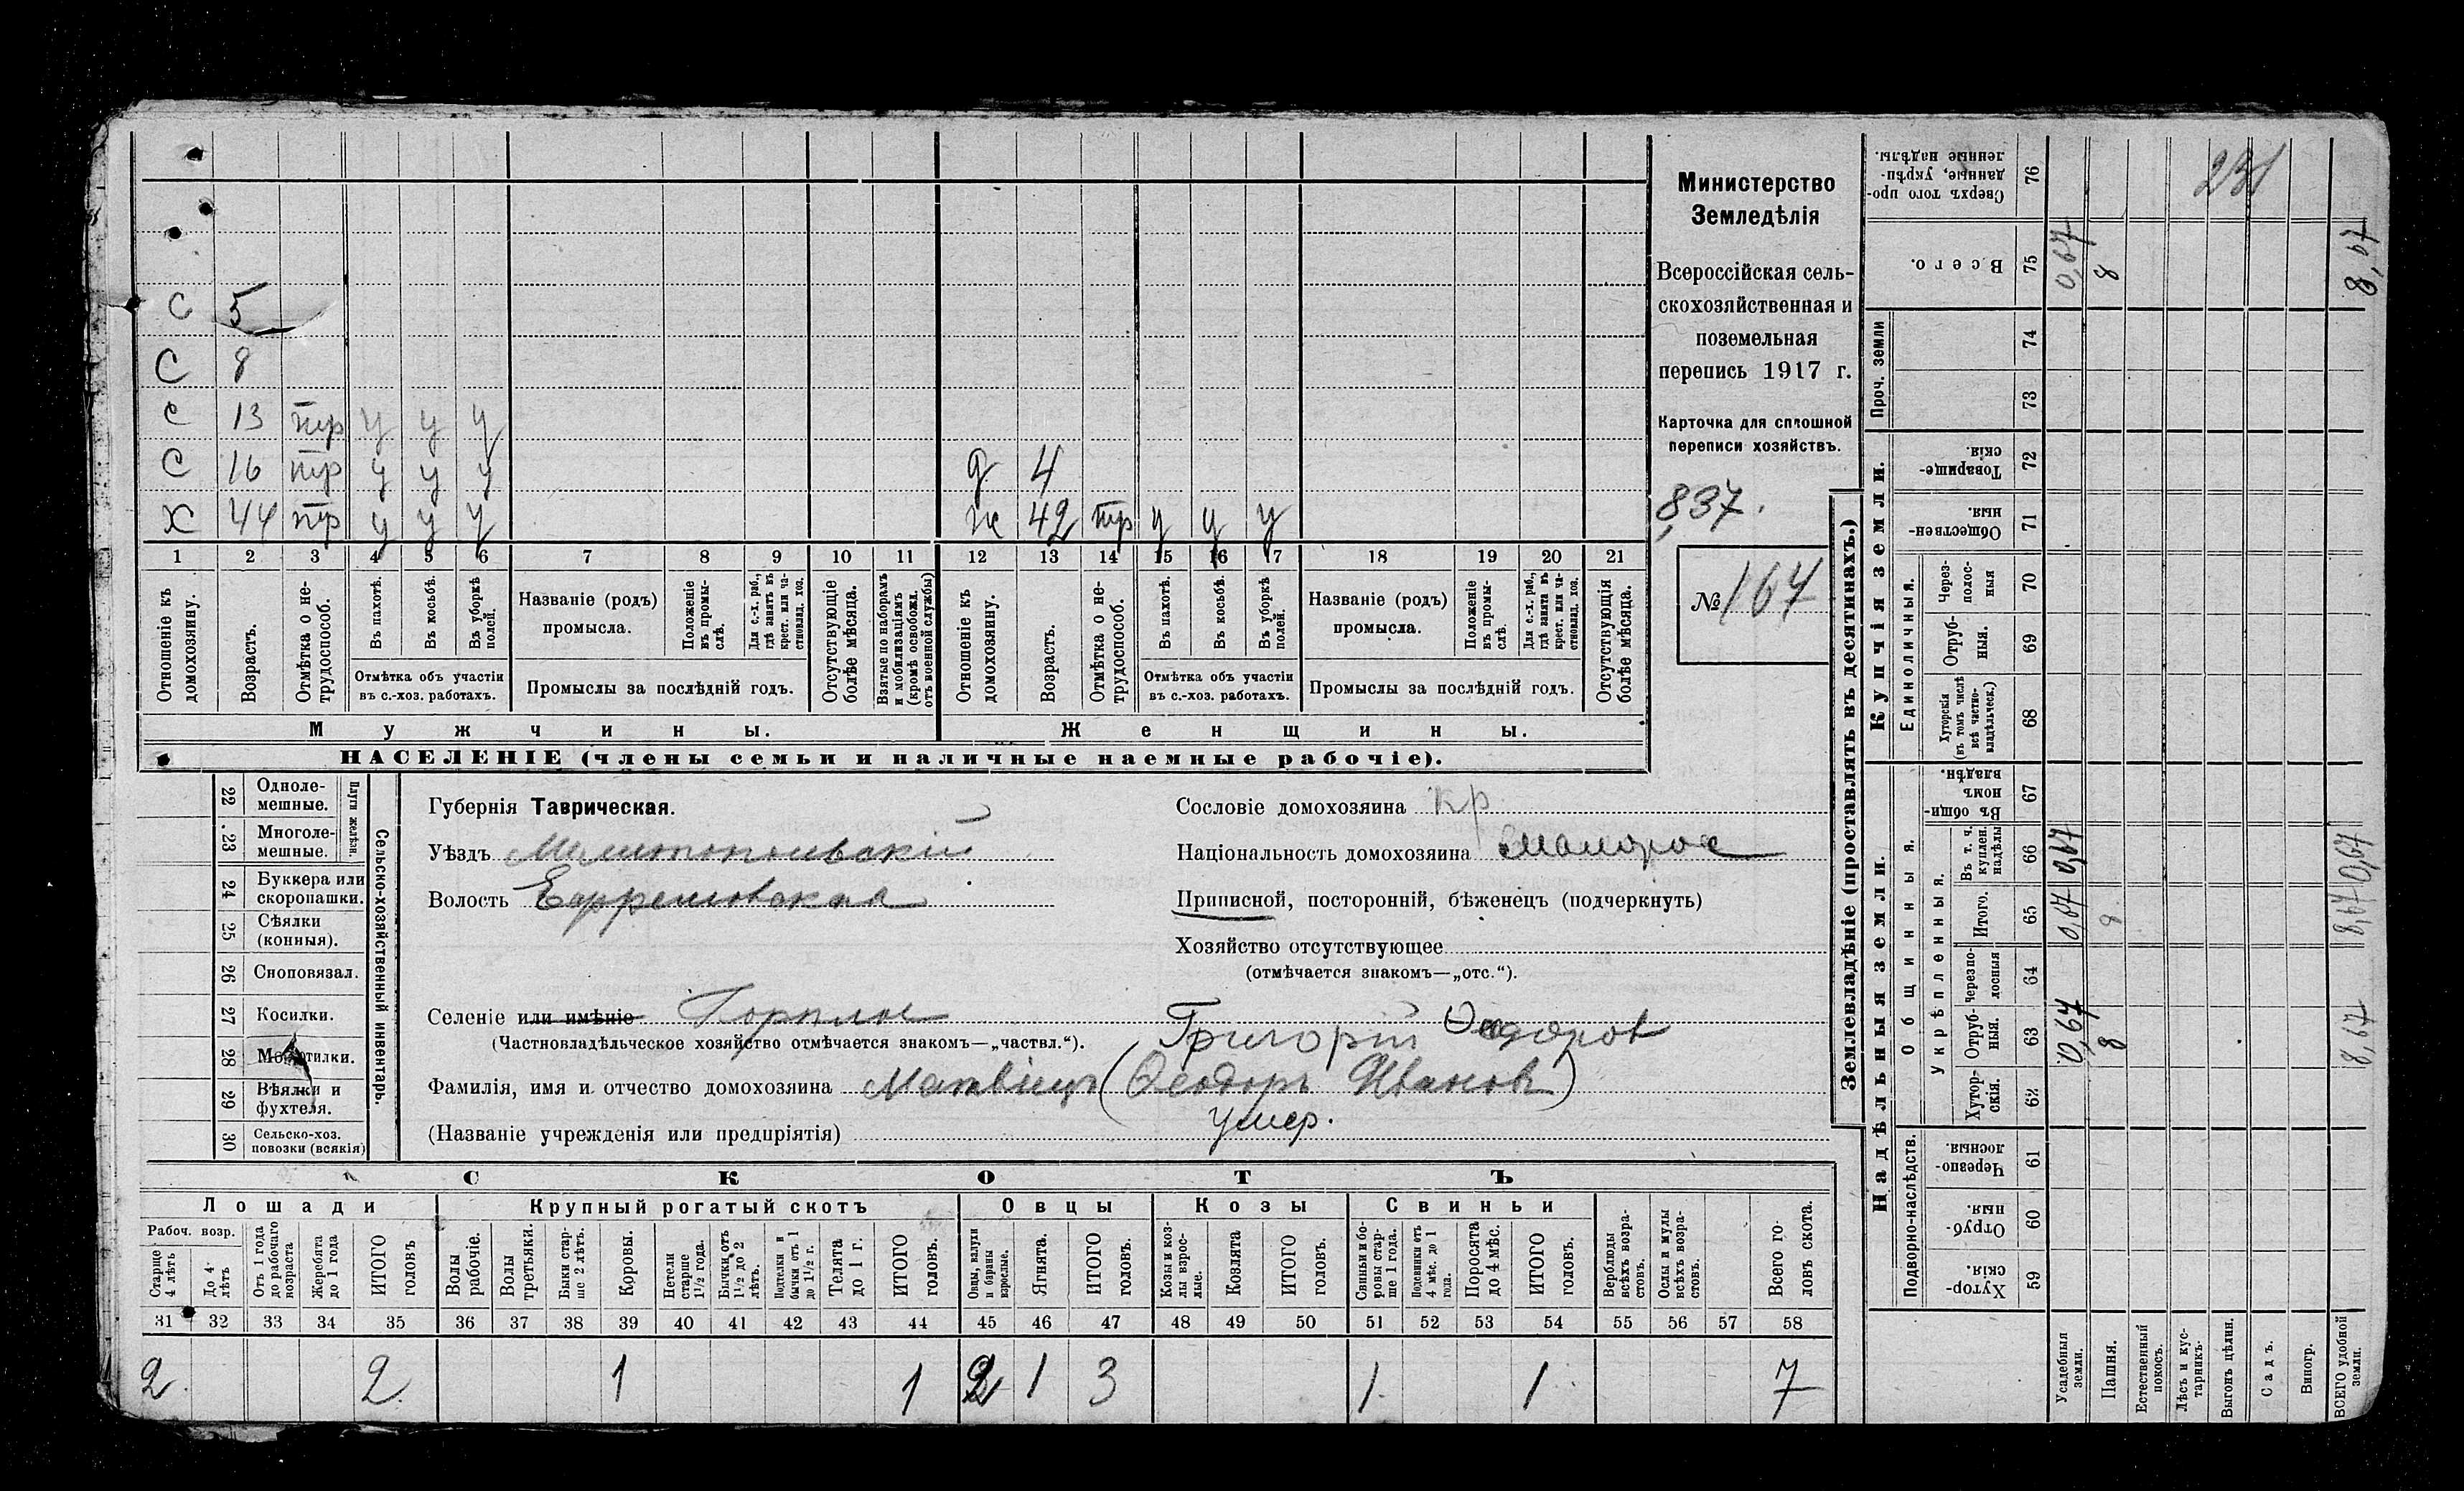 С 5
С 8
С 13 тр у у у
С 16 тр у у у
Х 44 тр у у у
д 4
ж 42 тр у у у
1 2 3 4 5 6 7 8 9 10 11 12 13 14 15 16 17 18 19 20 21
Отношеніе къ домохозяину.
Возрастъ.
Отмѣтка о нетрудоспособ.
Въ пахотѣ.
Въ косьбѣ.
Въ уборкѣ полей.
Отмѣтка объ участіи
въ с.-хоз. работахъ.
Названіе (родъ)
промысла.
Положеніе въ промыслѣ.
Для с.-х. раб., гдѣ занятъ въ крест. или частновлад. хоз.
Промыслы за послѣдній годъ.
Отсутствующіе болѣе мѣсяца.
Взятые по наборамъ и мобилизаціямъ (кромѣ освобожд. отъ военной службы)
Отношеніе къ домохозяину.
Возрастъ.
Отмѣтка о нетрудоспособ.
Въ пахотѣ.
Въ косьбѣ.
Въ уборкѣ полей.
Отмѣтка объ участіи
въ с.-хоз. работахъ.
Названіе (родъ)
промысла.
Положеніе въ промыслѣ.
Для с.-х. раб., гдѣ занята въ крест. или частновлад. хоз.
Промыслы за послѣдній годъ.
Отсутствующія болѣе мѣсяца.
Мужчины.
Женщины.
НАСЕЛЕНІЕ (члены семьи и наличные наемные рабочіе).
Министерство
Земледѣлія
Всероссійская сель-
скохозяйственная и
поземельная
перепись 1917 г.
Карточка для сплошной
переписи хозяйствъ.
837.
№ 164
22 Одноле-
мешные.
23 Многоле-
мешные.
Плуги желѣзн.
24 Буккера или
скоропашки.
25 Сѣялки
(конныя).
26 Сноповязал.
27 Косилки.
28 Молотилки.
29 Вѣялки и
фухтеля.
30 Сельско-хоз.
повозки (всякія)
Сельско-хозяйственный инвентарь.
Губернія Таврическая.
Уѣздъ Мелитопольскій
Волость Ефремовская
Селеніе или имѣніе
(Частновладѣльческое хозяйство отмѣчается знакомъ—„частвл.“).
Фамилія, имя и отчество домохозяина Матвіецъ (Ѳеодоръ Иванов)
умер.
(Названіе учрежденія или предпріятія)
Сословіе домохозяина кр
Національность домохозяина малорос
Приписной, посторонній, бѣженецъ (подчеркнуть)
Хозяйство отсутствующее
(отмѣчается знакомъ—„отс.“).
Григорій Ѳедоров
СКОТЪ
Лошади
Крупный рогатый скотъ
Овцы
Козы
Свиньи
Рабоч. возр.
Старше 4 лѣтъ
До 4 лѣтъ
Отъ 1 года до рабочаго возраста
Жеребята до 1 года
ИТОГО головъ
Волы рабочіе.
Волы третьяки.
Быки старше 2 лѣтъ.
Коровы.
Нетели старше 1½ года.
Бычки отъ 1½ до 2 лѣтъ.
Подтелки и бычки отъ 1 до 1½ г.
Телята до 1 г.
ИТОГО головъ.
Овцы, валухи и бараны взрослые.
Ягнята.
ИТОГО головъ.
Козы и козлы взрослые.
Козлята
ИТОГО головъ.
Свиньи и боровы старше 1 года.
Подсвинки отъ 4 мѣс. до 1 года.
Поросята до 4 мѣс.
ИТОГО головъ.
Верблюды всѣхъ возрастовъ.
Ослы и мулы всѣхъ возрастовъ.
Всего головъ скота.
31 32 33 34 35 36 37 38 39 40 41 42 43 44 45 46 47 48 49 50 51 52 53 54 55 56 57 58
2 2 1 1 2 1 3 1 1 7
Землевладѣніе (проставлять въ десятинахъ.)
Надѣльныя земли.
Купчія земли.
Проч. земли
Сверхъ того проданные, укрѣпленные надѣлы. 76 231
Всего. 75 0,67 8 8,67
74
73
Товарищескія. 72
Общественныя. 71
Единоличныя.
Черезполосныя 70
Отрубныя. 69
Хуторскія (въ томъ числѣ всѣ частновладѣльческ.) 68
Общинныя.
Въ общинномъ владѣн. 67
Укрѣпленныя.
Въ т. ч. куплен. надѣлы 66 0,67 0,67
Итого. 65 0,67 8 8,67
Черезполосныя 64
Отрубныя. 63 0,67 8 8,67
Хуторскія. 62
Подворно-наслѣдств.
Черезполосныя 61
Отрубныя. 60
Хуторскія 59
Усадебныя земли.
Пашня.
Естественный покосъ.
Лѣсъ и кустарникъ.
Выгонъ цѣлин.
Садъ.
Виногр.
ВСЕГО удобной земли.